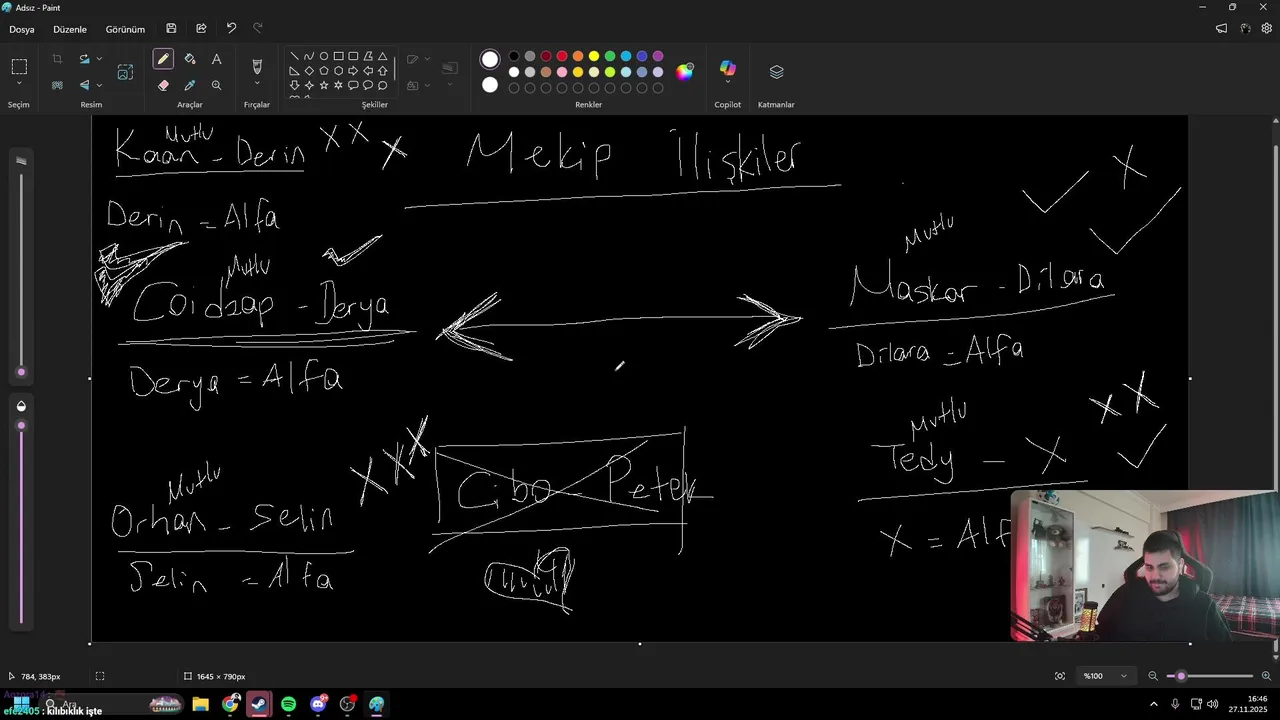 Adsız - Paint
Dosya Düzenle Görünüm
Seçim Resim Araçlar Fırçalar Şekiller Renkler Copilot Katmanlar
Mutlu
Kaan - Derin X X X
Mekip İlişkiler
X
Derin = Alfa
Mutlu
Coidzap - Derya
Derya = Alfa
Mutlu
Maskar - Dilara
Dilara = Alfa
Mutlu
X X X
Orhan - Selin
Selin = Alfa
Cibo - Petek
Mutlu
X X
Tedy - X
X = Alf
784, 383px
1645 × 790px
%100
Ara
16:46
27.11.2025
efe2405 : kılıbıklık işte